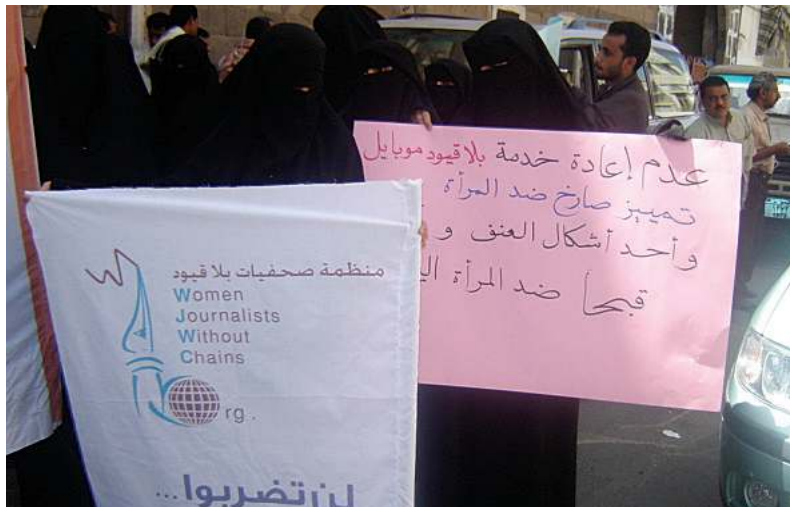 منظمة صحفيات بلاقيود
Women
Journalists
Without
Chains
rg.
لن تضربوا ...
عدم إعادة خدمة بلاقيود موبايل
تمييز صارخ ضد المرأة
وأحد أشكال العنف و
قبحاً ضد المرأة